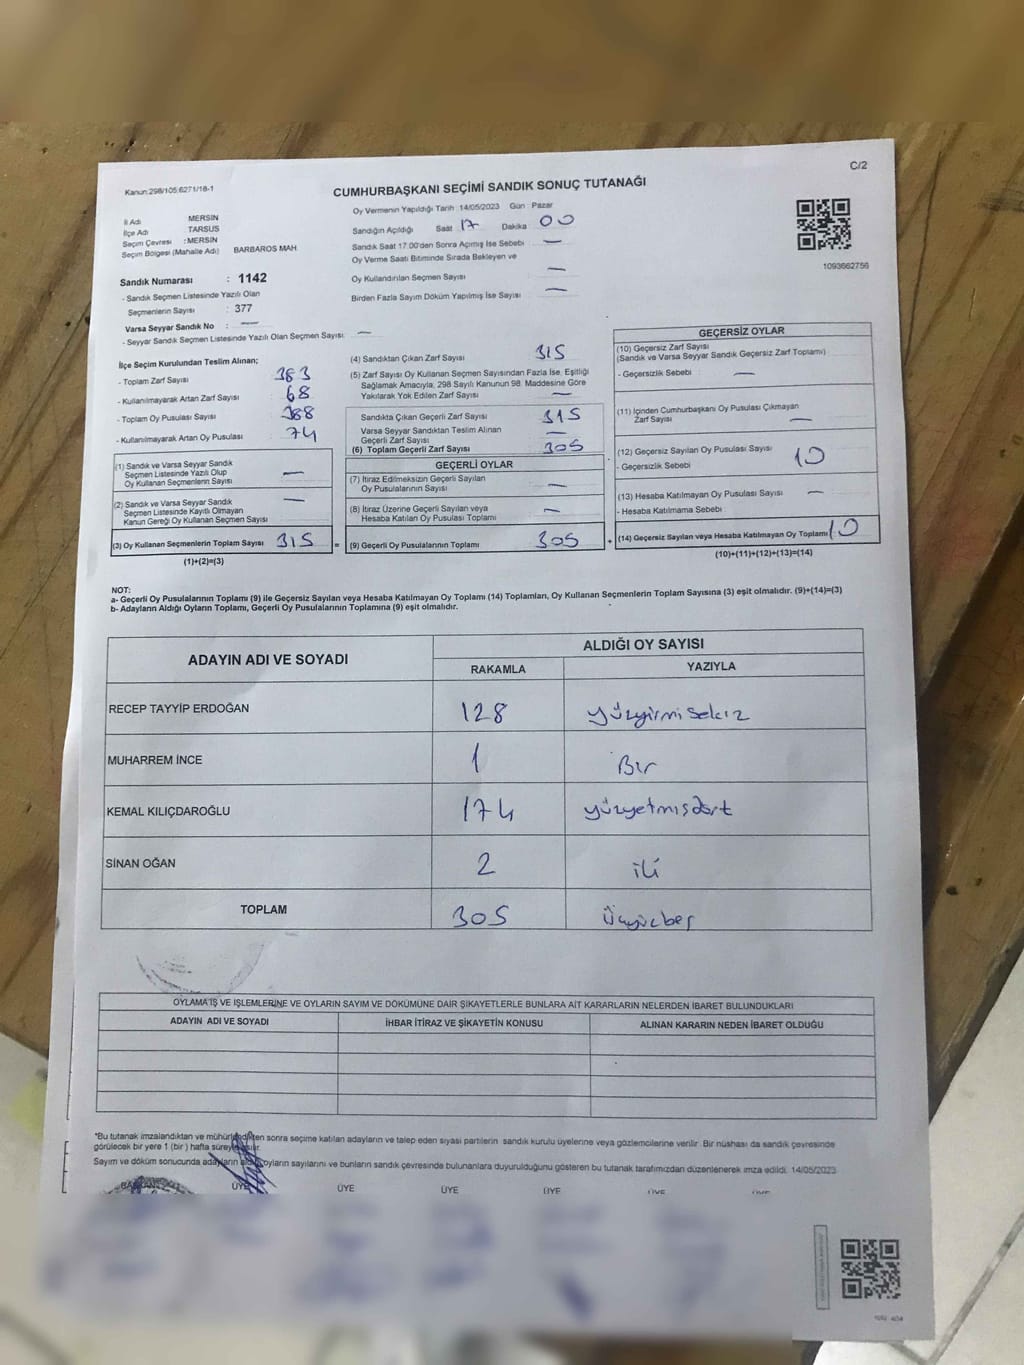 C/2
Kanun:298/105;6271/18-1
CUMHURBAŞKANI SEÇİMİ SANDIK SONUÇ TUTANAĞI
İl Adı MERSİN
İlçe Adı TARSUS
Seçim Çevresi :MERSİN
Seçim Bölgesi (Mahalle Adı) BARBAROS MAH
Oy Vermenin Yapıldığı Tarih :14/05/2023 Gün : Pazar
Sandığın Açıldığı Saat 17 Dakika 00
Sandık Saat 17:00'den Sonra Açımış İse Sebebi —
Oy Verme Saati Bitiminde Sırada Bekleyen ve
Oy Kullandırılan Seçmen Sayısı —
Birden Fazla Sayım Döküm Yapılmış İse Sayısı —
1093662756
Sandık Numarası : 1142
- Sandık Seçmen Listesinde Yazılı Olan
Seçmenlerin Sayısı : 377
Varsa Seyyar Sandık No : —
- Seyyar Sandık Seçmen Listesinde Yazılı Olan Seçmen Sayısı: —
İlçe Seçim Kurulundan Teslim Alınan;
- Toplam Zarf Sayısı 383
- Kullanılmayarak Artan Zarf Sayısı 68
- Toplam Oy Pusulası Sayısı 388
- Kullanılmayarak Artan Oy Pusulası 74
(1) Sandık ve Varsa Seyyar Sandık
Seçmen Listesinde Yazılı Olup
Oy Kullanan Seçmenlerin Sayısı —
(2) Sandık ve Varsa Seyyar Sandık
Seçmen Listesinde Kayıtlı Olmayan
Kanun Gereği Oy Kullanan Seçmen Sayısı —
(3) Oy Kullanan Seçmenlerin Toplam Sayısı 315 =
(1)+(2)=(3)
(4) Sandıktan Çıkan Zarf Sayısı 315
(5) Zarf Sayısı Oy Kullanan Seçmen Sayısından Fazla İse, Eşitliği
Sağlamak Amacıyla, 298 Sayılı Kanunun 98. Maddesine Göre
Yakılarak Yok Edilen Zarf Sayısı —
Sandıkta Çıkan Geçerli Zarf Sayısı 315
Varsa Seyyar Sandıktan Teslim Alınan
Geçerli Zarf Sayısı —
(6) Toplam Geçerli Zarf Sayısı 305
GEÇERLİ OYLAR
(7) İtiraz Edilmeksizin Geçerli Sayılan
Oy Pusulalarının Sayısı —
(8) İtiraz Üzerine Geçerli Sayılan veya
Hesaba Katılan Oy Pusulası Toplamı —
(9) Geçerli Oy Pusulalarının Toplamı 305 +
GEÇERSİZ OYLAR
(10) Geçersiz Zarf Sayısı
(Sandık ve Varsa Seyyar Sandık Geçersiz Zarf Toplamı)
- Geçersizlik Sebebi : —
(11) İçinden Cumhurbaşkanı Oy Pusulası Çıkmayan
Zarf Sayısı —
(12) Geçersiz Sayılan Oy Pusulası Sayısı 10
- Geçersizlik Sebebi
(13) Hesaba Katılmayan Oy Pusulası Sayısı —
- Hesaba Katılmama Sebebi
(14) Geçersiz Sayılan veya Hesaba Katılmayan Oy Toplamı 10
(10)+(11)+(12)+(13)=(14)
NOT:
a- Geçerli Oy Pusulalarının Toplamı (9) ile Geçersiz Sayılan veya Hesaba Katılmayan Oy Toplamı (14) Toplamları, Oy Kullanan Seçmenlerin Toplam Sayısına (3) eşit olmalıdır. (9)+(14)=(3)
b- Adayların Aldığı Oyların Toplamı, Geçerli Oy Pusulalarının Toplamına (9) eşit olmalıdır.
ADAYIN ADI VE SOYADI ALDIĞI OY SAYISI
RAKAMLA YAZIYLA
RECEP TAYYİP ERDOĞAN 128 yüzyirmisekiz
MUHARREM İNCE 1 Bir
KEMAL KILIÇDAROĞLU 174 yüzyetmişdört
SİNAN OĞAN 2 iki
TOPLAM 305 üçyüzbeş
OYLAMA İŞ VE İŞLEMLERİNE VE OYLARIN SAYIM VE DÖKÜMÜNE DAİR ŞİKAYETLERLE BUNLARA AİT KARARLARIN NELERDEN İBARET BULUNDUKLARI
ADAYIN ADI VE SOYADI İHBAR İTİRAZ VE ŞİKAYETİN KONUSU ALINAN KARARIN NEDEN İBARET OLDUĞU
*Bu tutanak imzalandıktan ve mühürlendikten sonra seçime katılan adayların ve talep eden siyasi partilerin sandık kurulu üyelerine veya gözlemcilerine verilir. Bir nüshası da sandık çevresinde
görülecek bir yere 1 (bir) hafta süreyle asılır.
Sayım ve döküm sonucunda adayların aldığı oyların sayılarını ve bunların sandık çevresinde bulunanlara duyurulduğunu gösteren bu tutanak tarafımızdan düzenlenerek imza edildi. 14/05/2023
BAŞKAN ÜYE ÜYE ÜYE ÜYE ÜYE ÜYE